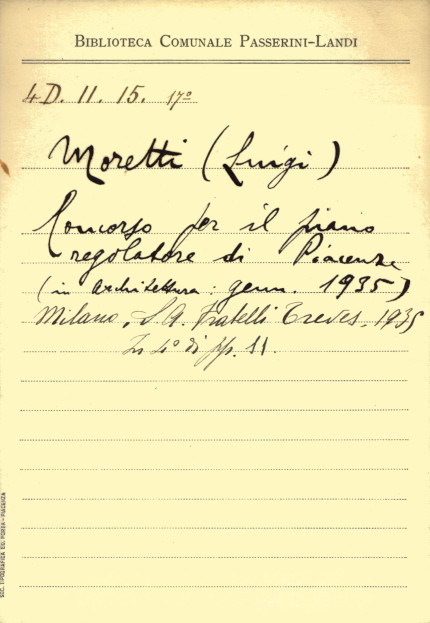 BIBLIOTECA COMUNALE PASSERINI-LANDI
4 D. II. 15. 17º
Moretti (Luigi)
Concorso per il piano
regolatore di Piacenza
(in Architettura: genn. 1935)
Milano, S. A. Fratelli Treves, 1935
In 4º di pp. 11.
SOC. TIPOGRAFICA ED. PORTA - PIACENZA